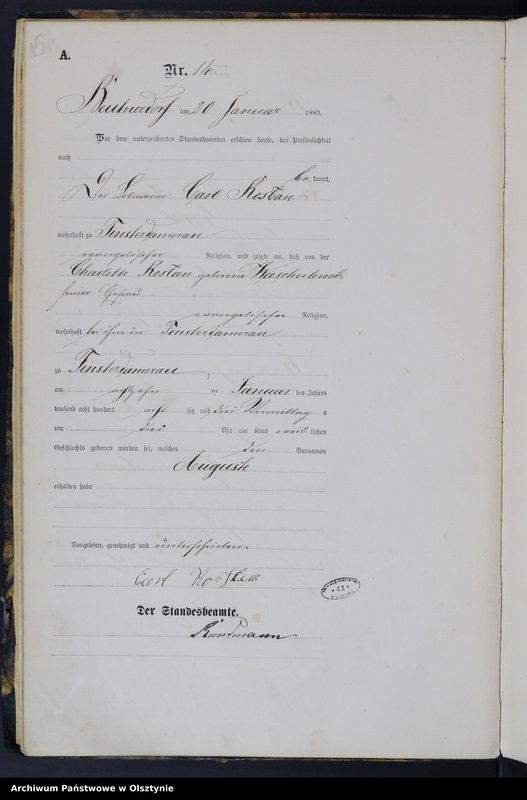 15
A.
Nr. 14
Beutnerdorf am 20 Januar 1883.
Vor dem unterzeichneten Standesbeamten erschien heute, der Persönlichkeit
nach
be kannt,
Der Carl Rostan
wohnhaft zu Finsterdamerau
evangelischer Religion, und zeigte an, daß von der
Charlotte Rostan geborene
seiner Ehefrau
evangelischer Religion,
wohnhaft bei ihm in Finsterdamerau
zu Finsterdamerau
am achtzehn ten Januar des Jahres
tausend acht hundert acht zig und drei Vormittag s
um drei Uhr ein Kind weib lichen
Geschlechts geboren worden sei, welches den Vornamen
Auguste
erhalten habe
Vorgelesen, genehmigt und unterschrieben.
Carl
Der Standesbeamte.
42
Archiwum Państwowe w Olsztynie